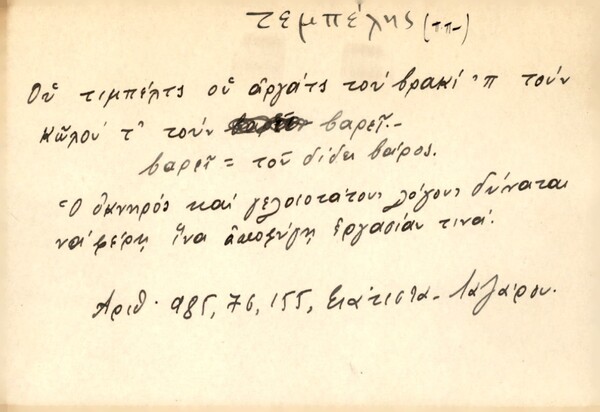 τεμπέλης (ππ-)
Οὑ τιμπέλτς οὑ ἀργάτς τοὺ βρακί 'π τοὺν
κῶλου τ' τοὺν βαρεῖ.-
βαρεῖ = τοῦ δίδει βάρος.
Ὁ ὀκνηρός καί γελοιοτάτους λόγους δύναται
νά φέρῃ ἵνα ἀποφύγῃ ἐργασίαν τινά.
Ἀριθ. 985, 76, 155, Σιάτιστα - Λαζάρου.